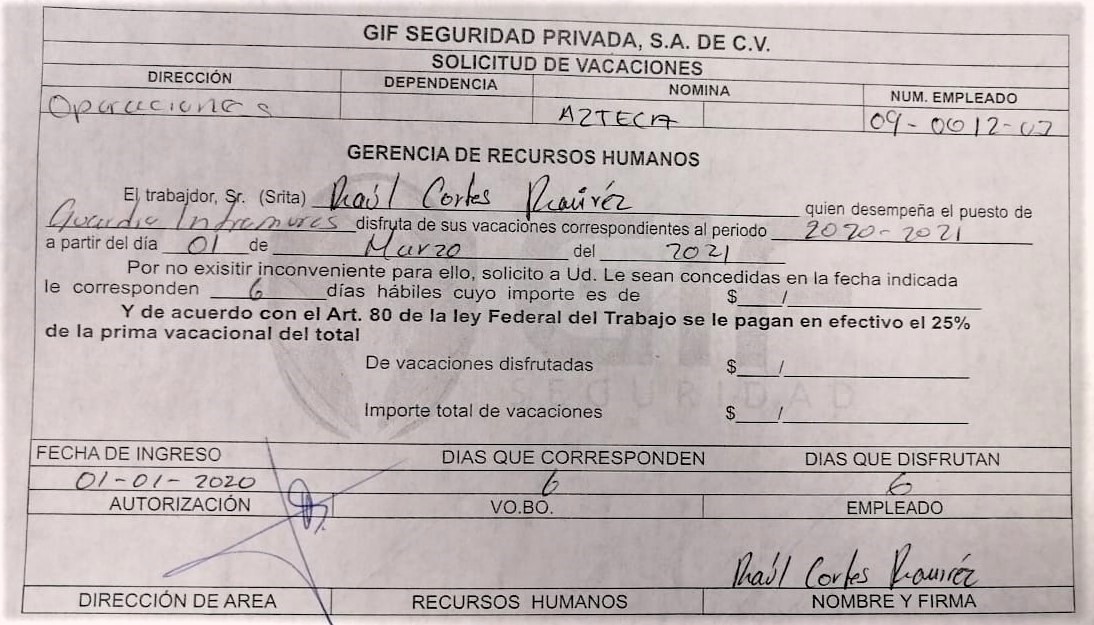 GIF SEGURIDAD PRIVADA, S.A. DE C.V.
SOLICITUD DE VACACIONES
DIRECCIÓN DEPENDENCIA NOMINA NUM. EMPLEADO
Operaciones AZTECA 09-0012-07
GERENCIA DE RECURSOS HUMANOS
El trabajdor, Sr. (Srita) Raúl Cortes Ramiréz quien desempeña el puesto de
Guardia Intramuros disfruta de sus vacaciones correspondientes al periodo 2020-2021
a partir del día 01 de Marzo del 2021
Por no exisitir inconveniente para ello, solicito a Ud. Le sean concedidas en la fecha indicada
le corresponden 6 días hábiles cuyo importe es de $ /
Y de acuerdo con el Art. 80 de la ley Federal del Trabajo se le pagan en efectivo el 25%
de la prima vacacional del total
De vacaciones disfrutadas $ /
SEGURIDAD
Importe total de vacaciones $ /
FECHA DE INGRESO DIAS QUE CORRESPONDEN DIAS QUE DISFRUTAN
01-01-2020 6 6
AUTORIZACIÓN VO.BO. EMPLEADO
Raúl Cortes Ramiréz
DIRECCIÓN DE AREA RECURSOS HUMANOS NOMBRE Y FIRMA